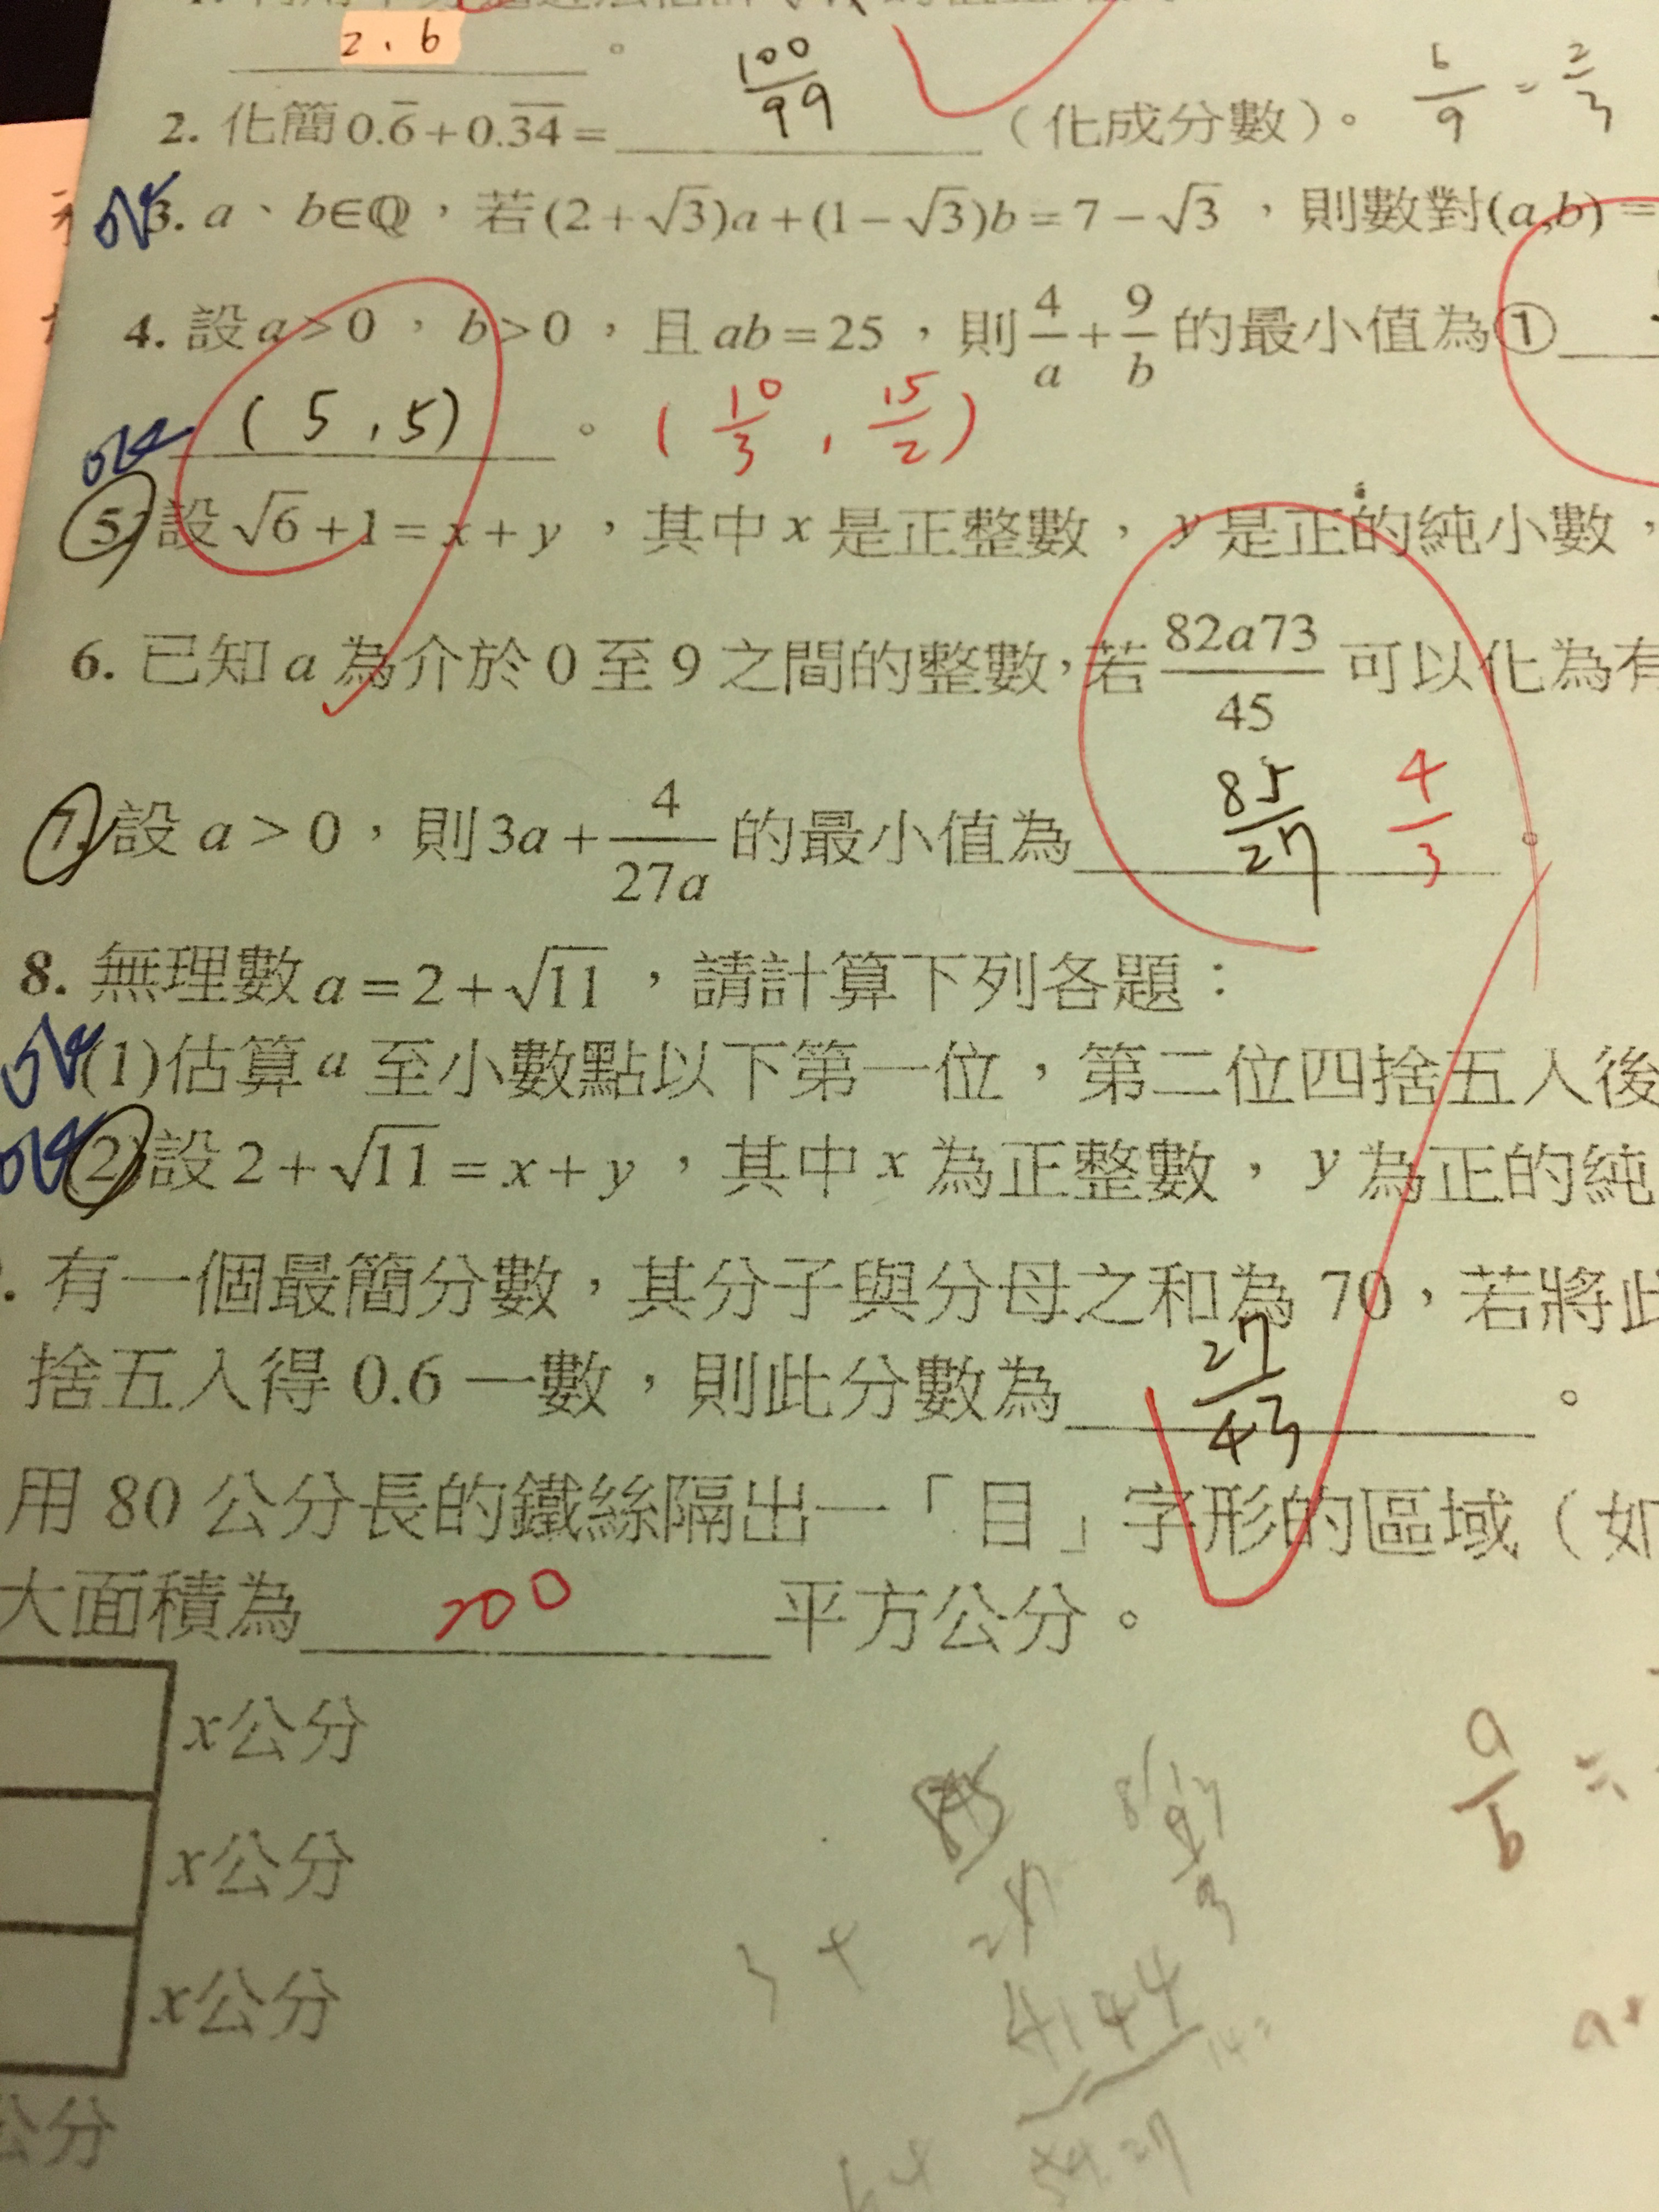 2.6
。
2. 化簡 0.6̅ + 0.3̅4̅ = 100/99 (化成分數)。 6/9 = 2/3
3. a、b∈ℚ，若(2+√3)a+(1−√3)b=7−√3，則數對(a,b)=
4. 設 a>0，b>0，且 ab=25，則 4/a + 9/b 的最小值為①
(5,5)。(10/3, 15/2)
5. 設 √6+1=x+y，其中 x 是正整數，y 是正的純小數，
6. 已知 a 為介於 0 至 9 之間的整數，若 82a73/45 可以化為有
7. 設 a>0，則 3a + 4/27a 的最小值為 85/27 4/3 。
8. 無理數 a=2+√11，請計算下列各題：
(1)估算 a 至小數點以下第一位，第二位四捨五入後
(2)設 2+√11=x+y，其中 x 為正整數，y 為正的純
. 有一個最簡分數，其分子與分母之和為 70，若將此
捨五入得 0.6 一數，則此分數為 27/43 。
用 80 公分長的鐵絲隔出一「目」字形的區域（如
大面積為 200 平方公分。
x公分
x公分
a/b =
x公分
3 +
4144
公分